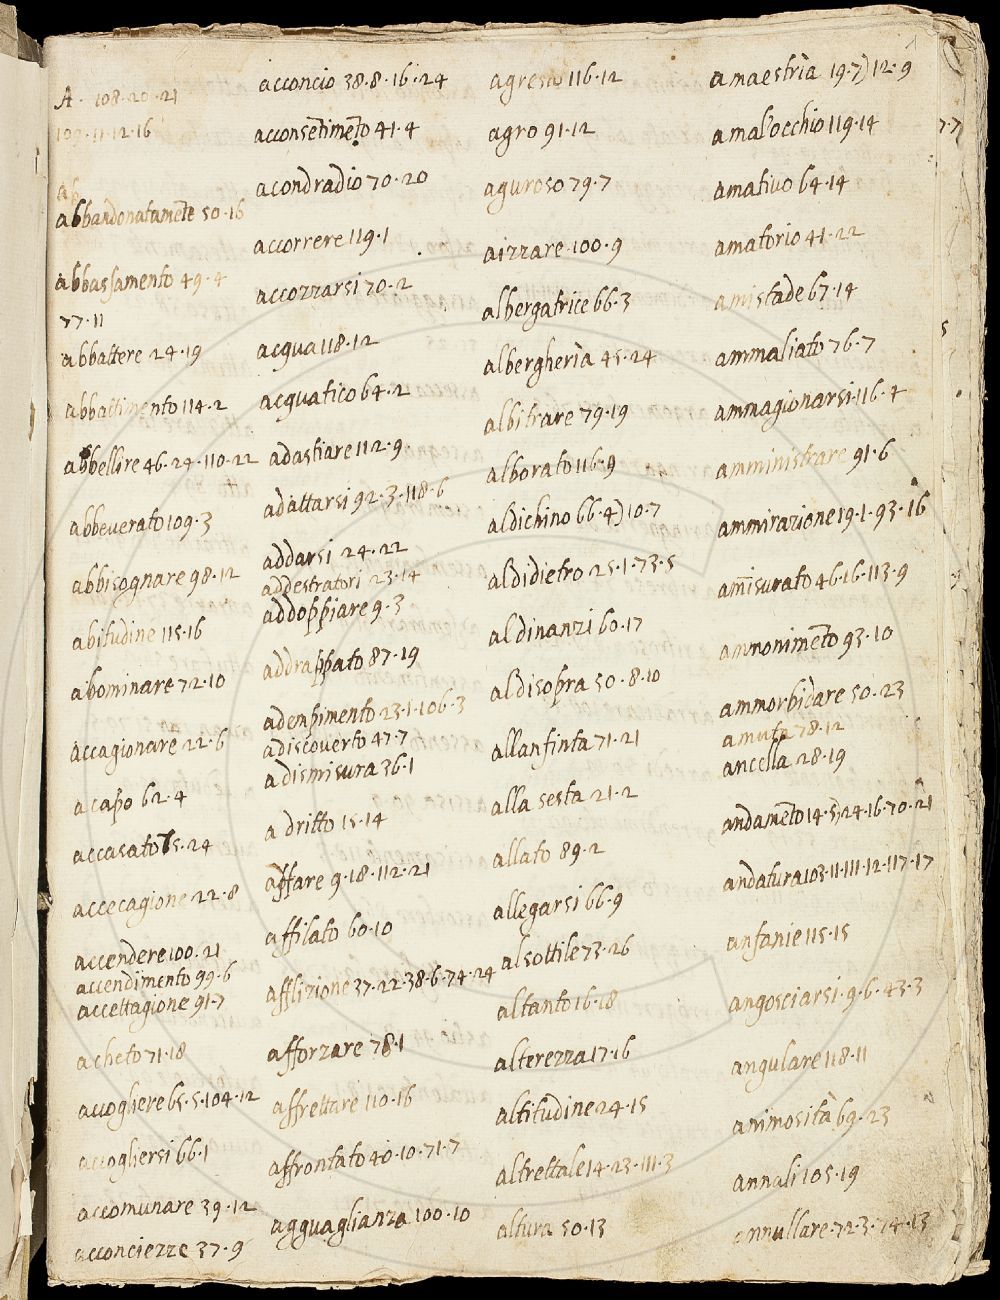 A. 108.20.21
109.11.12.16
ab
abbandonatamẽte 50.16
abbassamento 49.4
77.11
abbattere 24.19
abbattimento 114.2
abbellire 46.24.110.22
abbeverato 109.3
abbisognare 98.12
abitudine 115.16
abominare 72.10
accagionare 22.6
a capo 62.4
accasato 75.24
accecagione 22.8
accendere 100.21
accendimento 99.6
accettagione 91.7
acheto 71.18
accogliere 65.5.104.12
accogliersi 66.1
accomunare 39.12
acconciezze 37.9
acconcio 38.8.16.24
acconsẽtimẽto 41.4
acondradio 70.20
accorrere 119.1
accozzarsi 70.2
acqua 118.12
acquatico 64.2
adastiare 112.9
adattarsi 92.3.118.6
addarsi 24.22
addestratori 23.14
addoppiare 9.3
addrappato 87.19
adempimento 23.1.106.3
adiscoverto 47.7
adismisura 36.1
a dritto 15.14
affare 9.18.112.21
affilato 60.10
afflizione 37.22.38.6.74.24
afforzare 78.1
affrettare 110.16
affrontato 40.10.71.7
agguaglianza 100.10
agresto 116.12
agro 91.12
aguroso 79.7
aizzare 100.9
albergatrice 66.3
albergherìa 45.24
albitrare 79.19
alborato 116.9
aldichino 66.4) 10.7
aldidietro 25.1.73.5
aldinanzi 60.17
aldisopra 50.8.10
allanfinta 71.21
alla sesta 21.2
allato 89.2
allegarsi 66.9
alsottile 73.26
altanto 16.18
alterezza 17.16
altitudine 24.15
altrettale 14.23.111.3
altura 50.13
amaestrìa 19.7) 12.9
amal'occhio 119.14
amativo 64.14
amatorio 41.22
amistade 67.14
ammaliato 76.7
ammagionarsi 116.4
amministrare 91.6
ammirazione 19.1.93.16
am̃isurato 46.16.113.9
ammonimẽto 93.10
ammorbidare 50.23
amuta 78.12
ancella 28.19
andamẽto 14.5) 24.16.70.21
andatura 103.11.111.12.117.17
anfanie 115.15
angosciarsi 9.6.43.3
angulare 118.11
animosità 69.23
annali 105.19
annullare 72.3.74.13